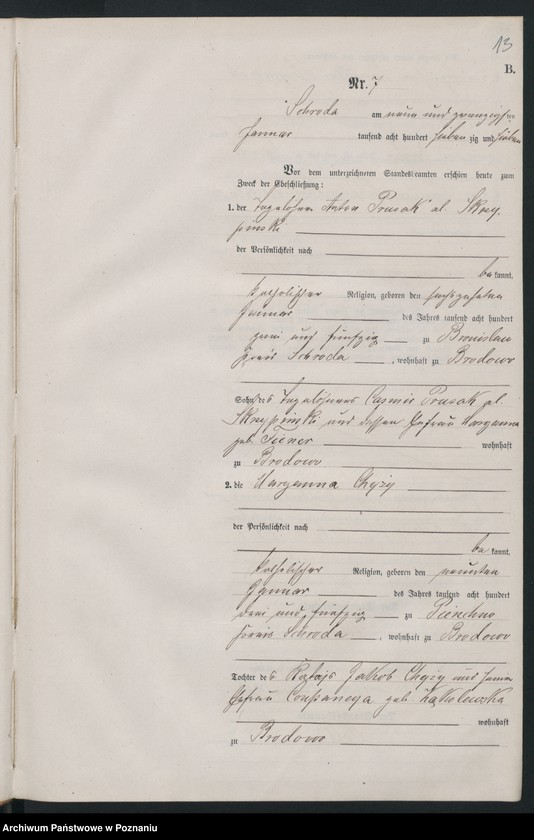 13
B.
Nr. 7
Schroda am neun und zwanzigsten
Januar tausend acht hundert sieben zig und sieben
Vor dem unterzeichneten Standesbeamten erschien heute zum
Zweck der Eheschließung:
1. der Tagelöhner Anton Prusak al. Skrzy-
pinski
der Persönlichkeit nach
be kannt,
katholischer Religion, geboren den sechszehnten
Januar des Jahres tausend acht hundert
zwei und fünfzig zu Bronislaw
Kreis Schroda, wohnhaft zu Brodowo
Sohn des Tagelöhners Casimir Prusak al.
Skrzypinski und dessen Ehefrau Maryanna
geb. wohnhaft
zu Brodowo
2. die Maryanna Chyzy
der Persönlichkeit nach
be kannt,
katholischer Religion, geboren den neunten
Januar des Jahres tausend acht hundert
drei und fünfzig zu
Kreis Schroda, wohnhaft zu Brodowo
Tochter des Ratajs Jakob Chyzy und seiner
Ehefrau geb.
wohnhaft
zu Brodowo
Archiwum Państwowe w Poznaniu